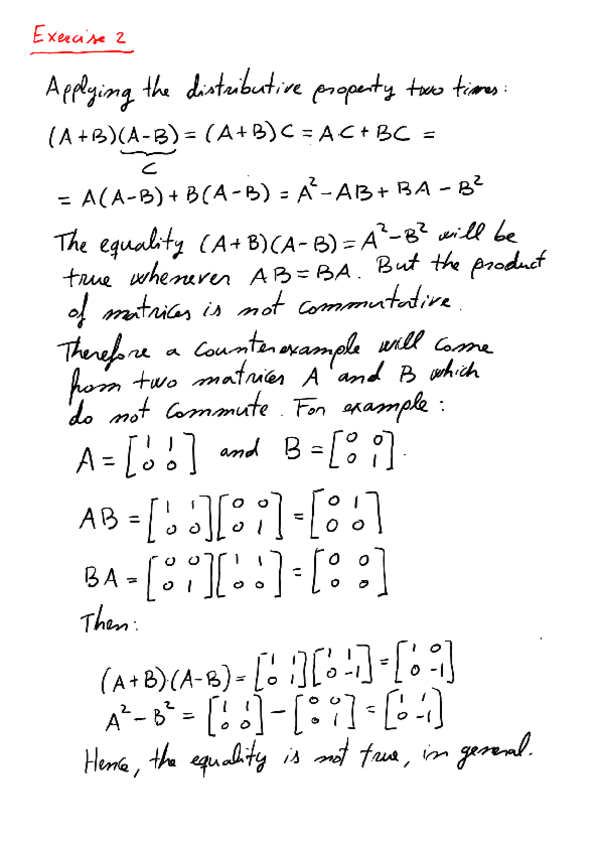 Exercise 2
Applying the distributive property two times:
(A+B)(A-B) = (A+B)C = AC + BC =
C
= A(A-B) + B(A-B) = A² - AB + BA - B²
The equality (A+B)(A-B) = A² - B² will be
true whenever AB = BA. But the product
of matrices is not commutative.
Therefore a counterexample will come
from two matrices A and B which
do not commute. For example:
A = [1 1; 0 0] and B = [0 0; 0 1].
AB = [1 1; 0 0][0 0; 0 1] = [0 1; 0 0]
BA = [0 0; 0 1][1 1; 0 0] = [0 0; 0 0]
Then:
(A+B)·(A-B) = [1 1; 0 1][1 1; 0 -1] = [1 0; 0 -1]
A² - B² = [1 1; 0 0] - [0 0; 0 1] = [1 1; 0 -1]
Hence, the equality is not true, in general.